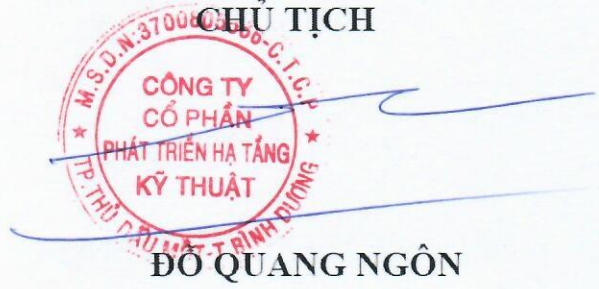 CHỦ TỊCH
M.S.D.N:3700805566-C.T.C.P
CÔNG TY
CỔ PHẦN
PHÁT TRIỂN HẠ TẦNG
KỸ THUẬT
TP.THỦ DẦU MỘT-T.BÌNH DƯƠNG
ĐỖ QUANG NGÔN